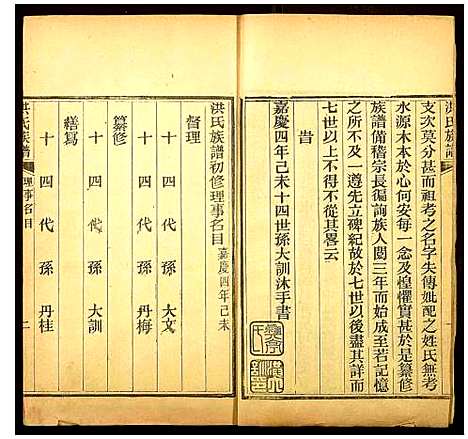 洪氏族譜
支次莫分甚而祖考之名字失傳妣配之姓氏無考
水源木本於心何安每一念及惶懼實甚於是纂修
族譜備稽宗長徧詢族人閱三年而成至若記憶
之所不及一遵先立碑紀故於七世以後盡其詳焉
七世以上不得不從其畧云
旹
嘉慶四年己未十四世孫大訓沐手書
洪氏族譜初修理事名目 嘉慶四年己未
督理
十四代孫 大文
十四代孫 丹梅
纂修
十四代孫 大訓
繕寫
十四代孫 丹桂
洪氏族譜 理事名目 二